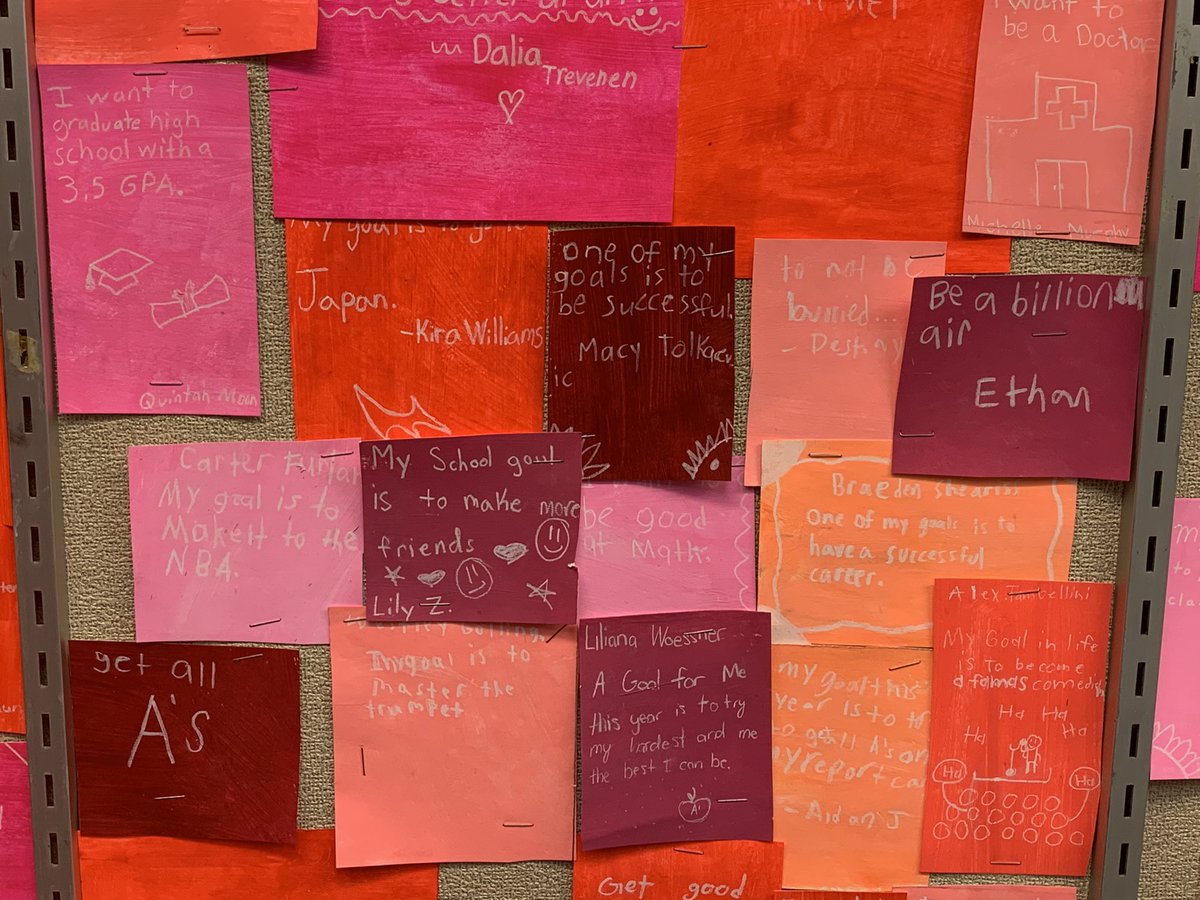 I want to
graduate high
school with a
3.5 GPA.
Quintah Moon
Dalia
Trevenen
I want to
be a Doctor
Michelle Murphy
My goal is to go to
Japan.
-Kira Williams
one of my
goals is to
be successful.
Macy Tolkac
ic
to not be
burried...
- Destiny
Be a billion
air
Ethan
Carter
My goal is to
Makeit to the
NBA.
My School goal
is to make more
friends
Lily Z.
be good
at Math.
Braeden
One of my goals is to
have a successful
career.
get all
A's
my goal is to
master the
trumpet
Liliana Woessner
A Goal for Me
this year is to try
my hardest and me
the best I can be.
A+
my goal this
year is to
to get all A's on
my report
- Aidan J
Alex Tambellini
My Goal in life
is To become
a famous
Ha Ha
Ha Ha
Ha Ha
Get good